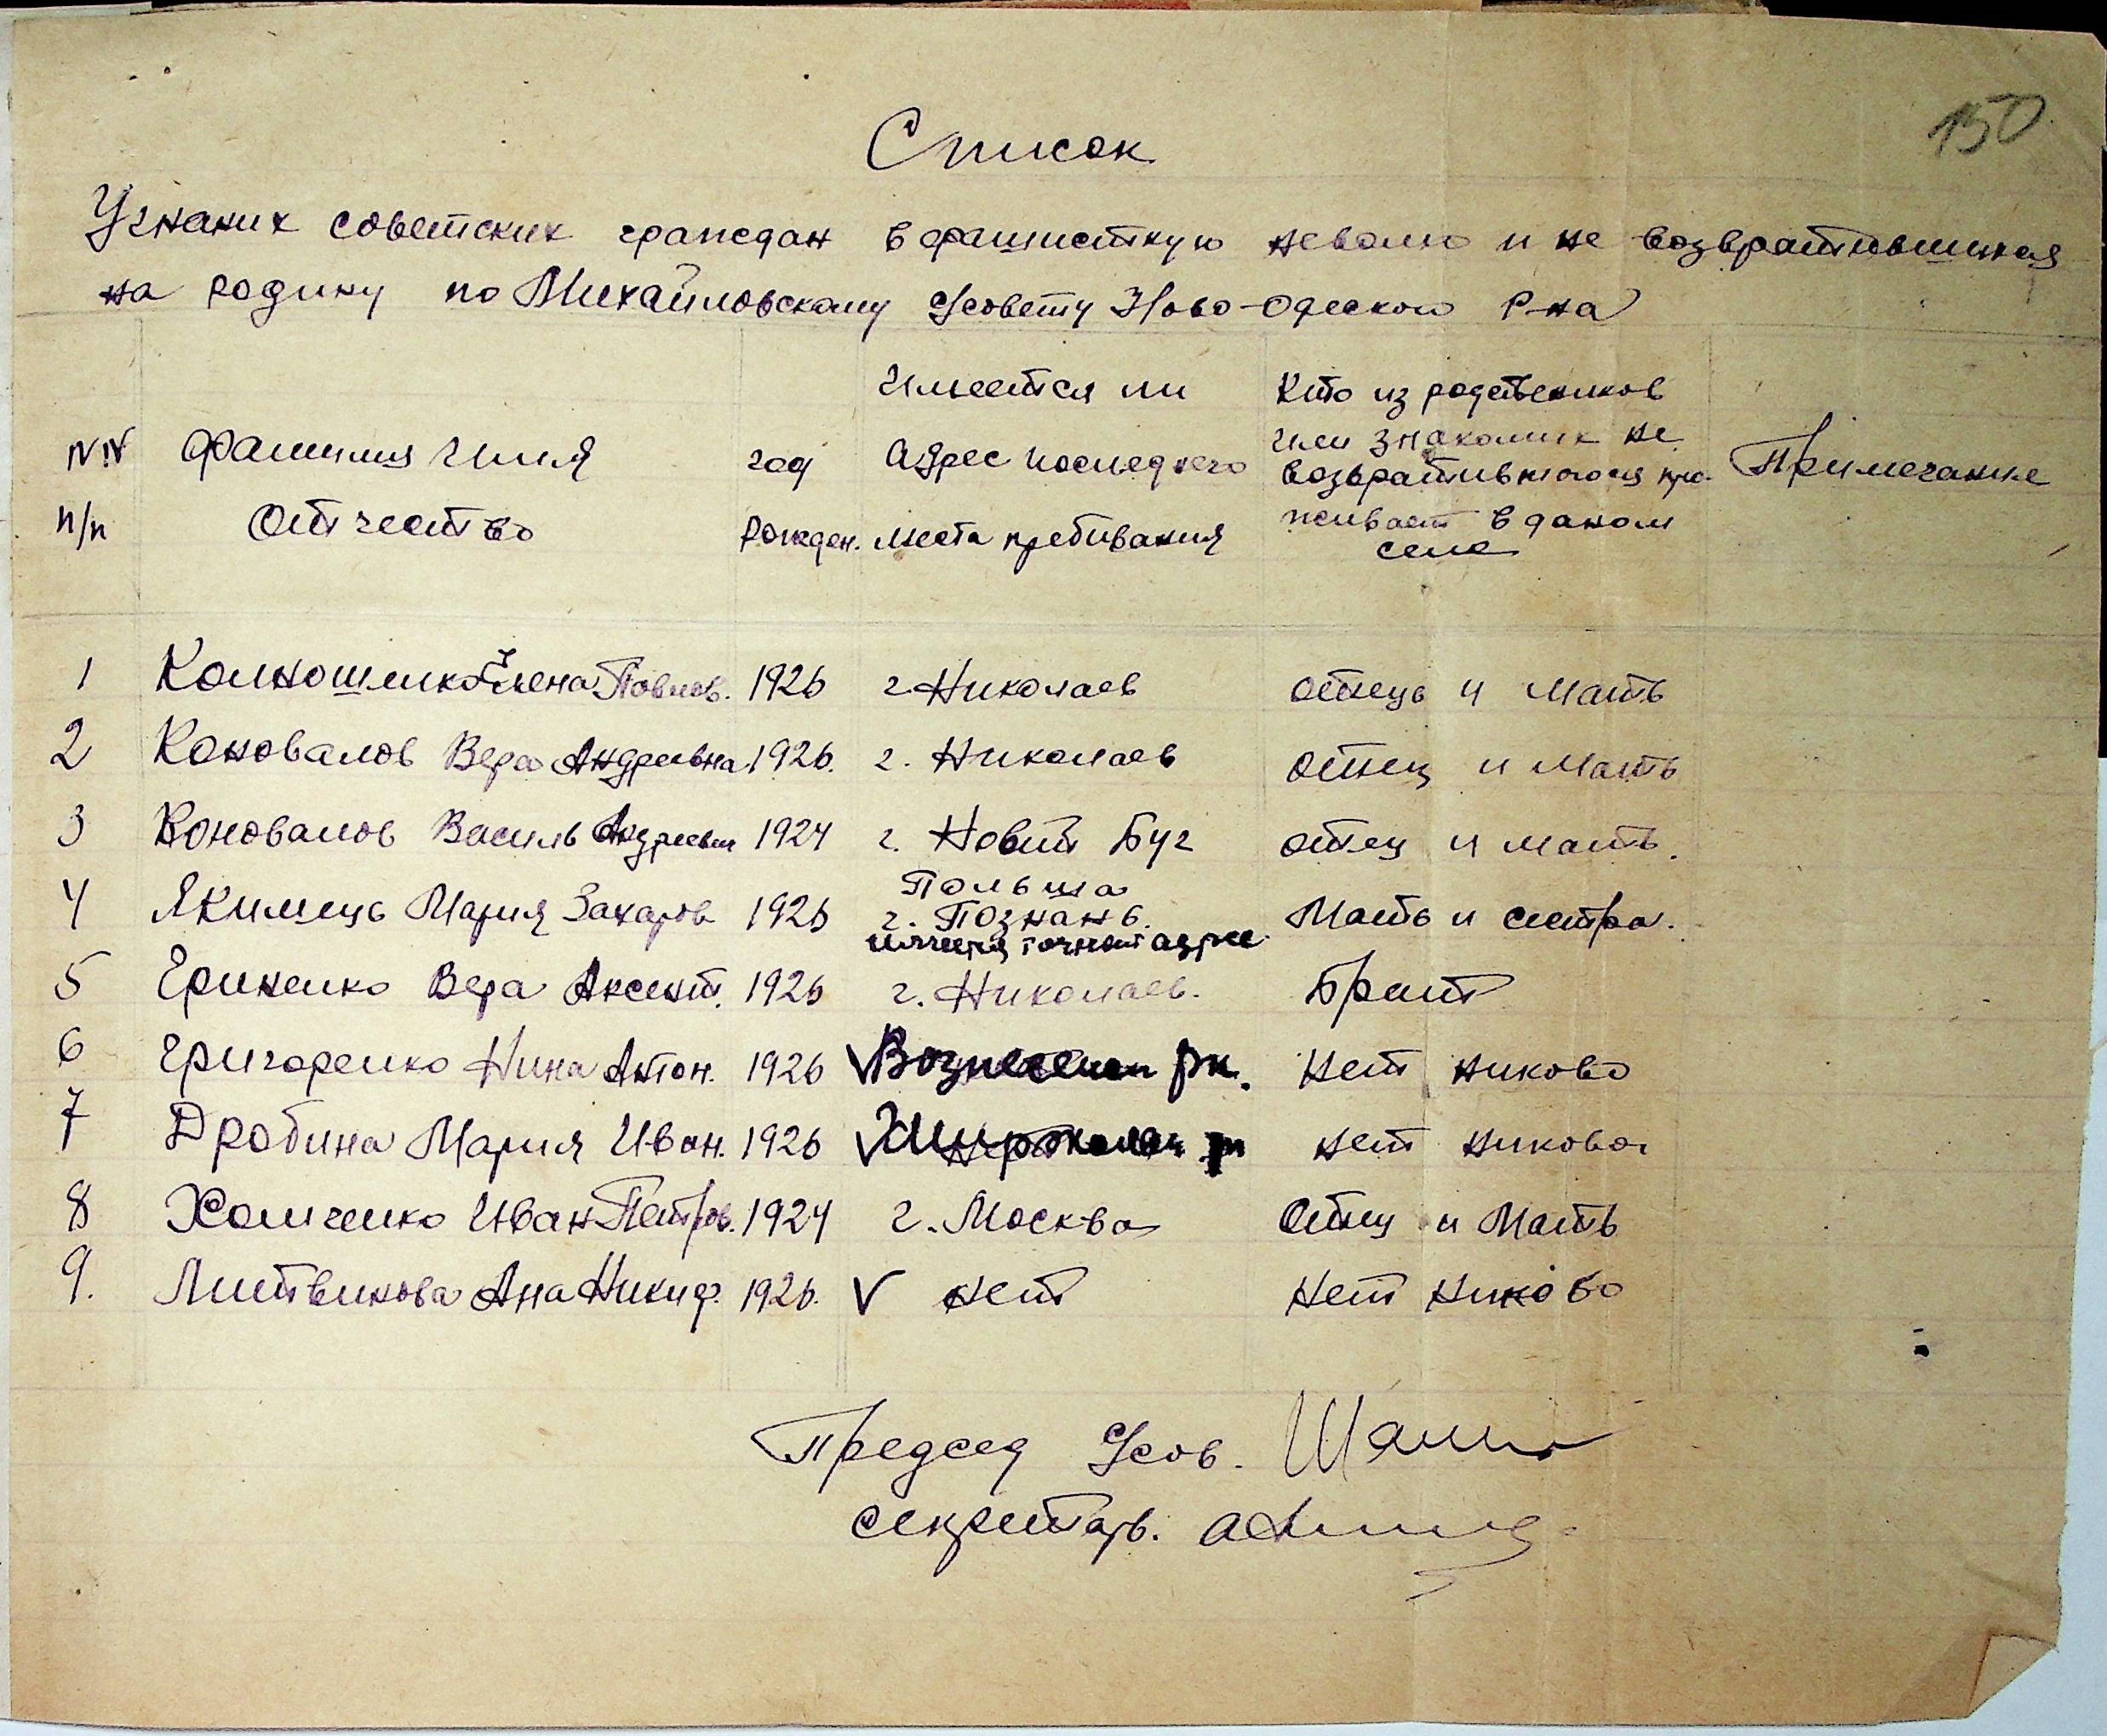 150
Список
Угнаних советских граждан в фашисткую неволю и не возвратившихся
на родину по Михайловскому с/совету Ново-Одеского р-на
NN п/п
Фамилия Имя Отчество
год рожден.
Имеется ли адрес последнего места пребивания
Кто из родствеников или знакомих не возвратившегося проживает в даном селе
Примечание
1 Елена Павлов. 1926 г. Николаев отець и Мать
2 Коновалов Вера Андреевна 1926. г. Николаев отец и Мать
3 Коновалов Василь Андреевич 1924 г. Новий Буг отец и мать.
4 Якимець Мария Захаров 1926 Польша г. Познань. имеется точной адрес Мать и сестра.
5 Вера Аксент. 1926 г. Николаев. Брат
6 Григоренко Нина Антон. 1926 V Вознесенск рн. Нет никово
7 Дробина Мария Иван. 1926 V нет никово
8 Хомченко Иван Петров. 1924 г. Москва Отец и Мать
9. Литвинова Ана Никиф. 1926. V нет Нет никово
Председ с/сов.
секретарь.